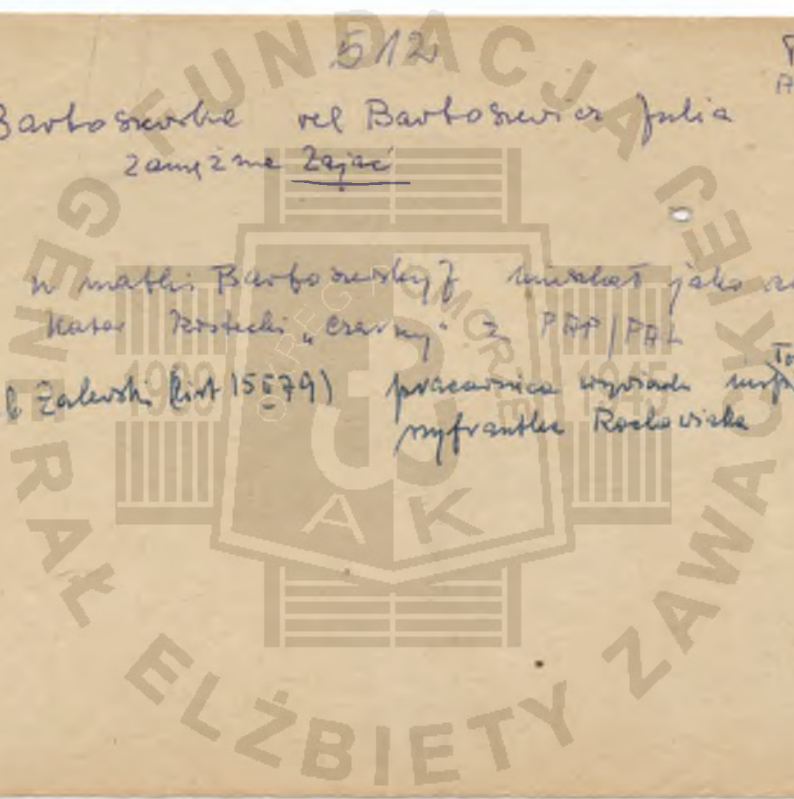 512
Bartoszewska vel Bartoszewicz Julia
zamężna Zając
u matki Bartoszewskiej mieszkał jako
Kostecki „Czarny" z PAP/PAL
Zalewski (list 15 79) pracownica wywiadu
szyfrantka Rocławiska
FUNDACJA GENERAŁ ELŻBIETY ZAWACKIEJ
OKRĘG POMORZE
1939 1945
AK